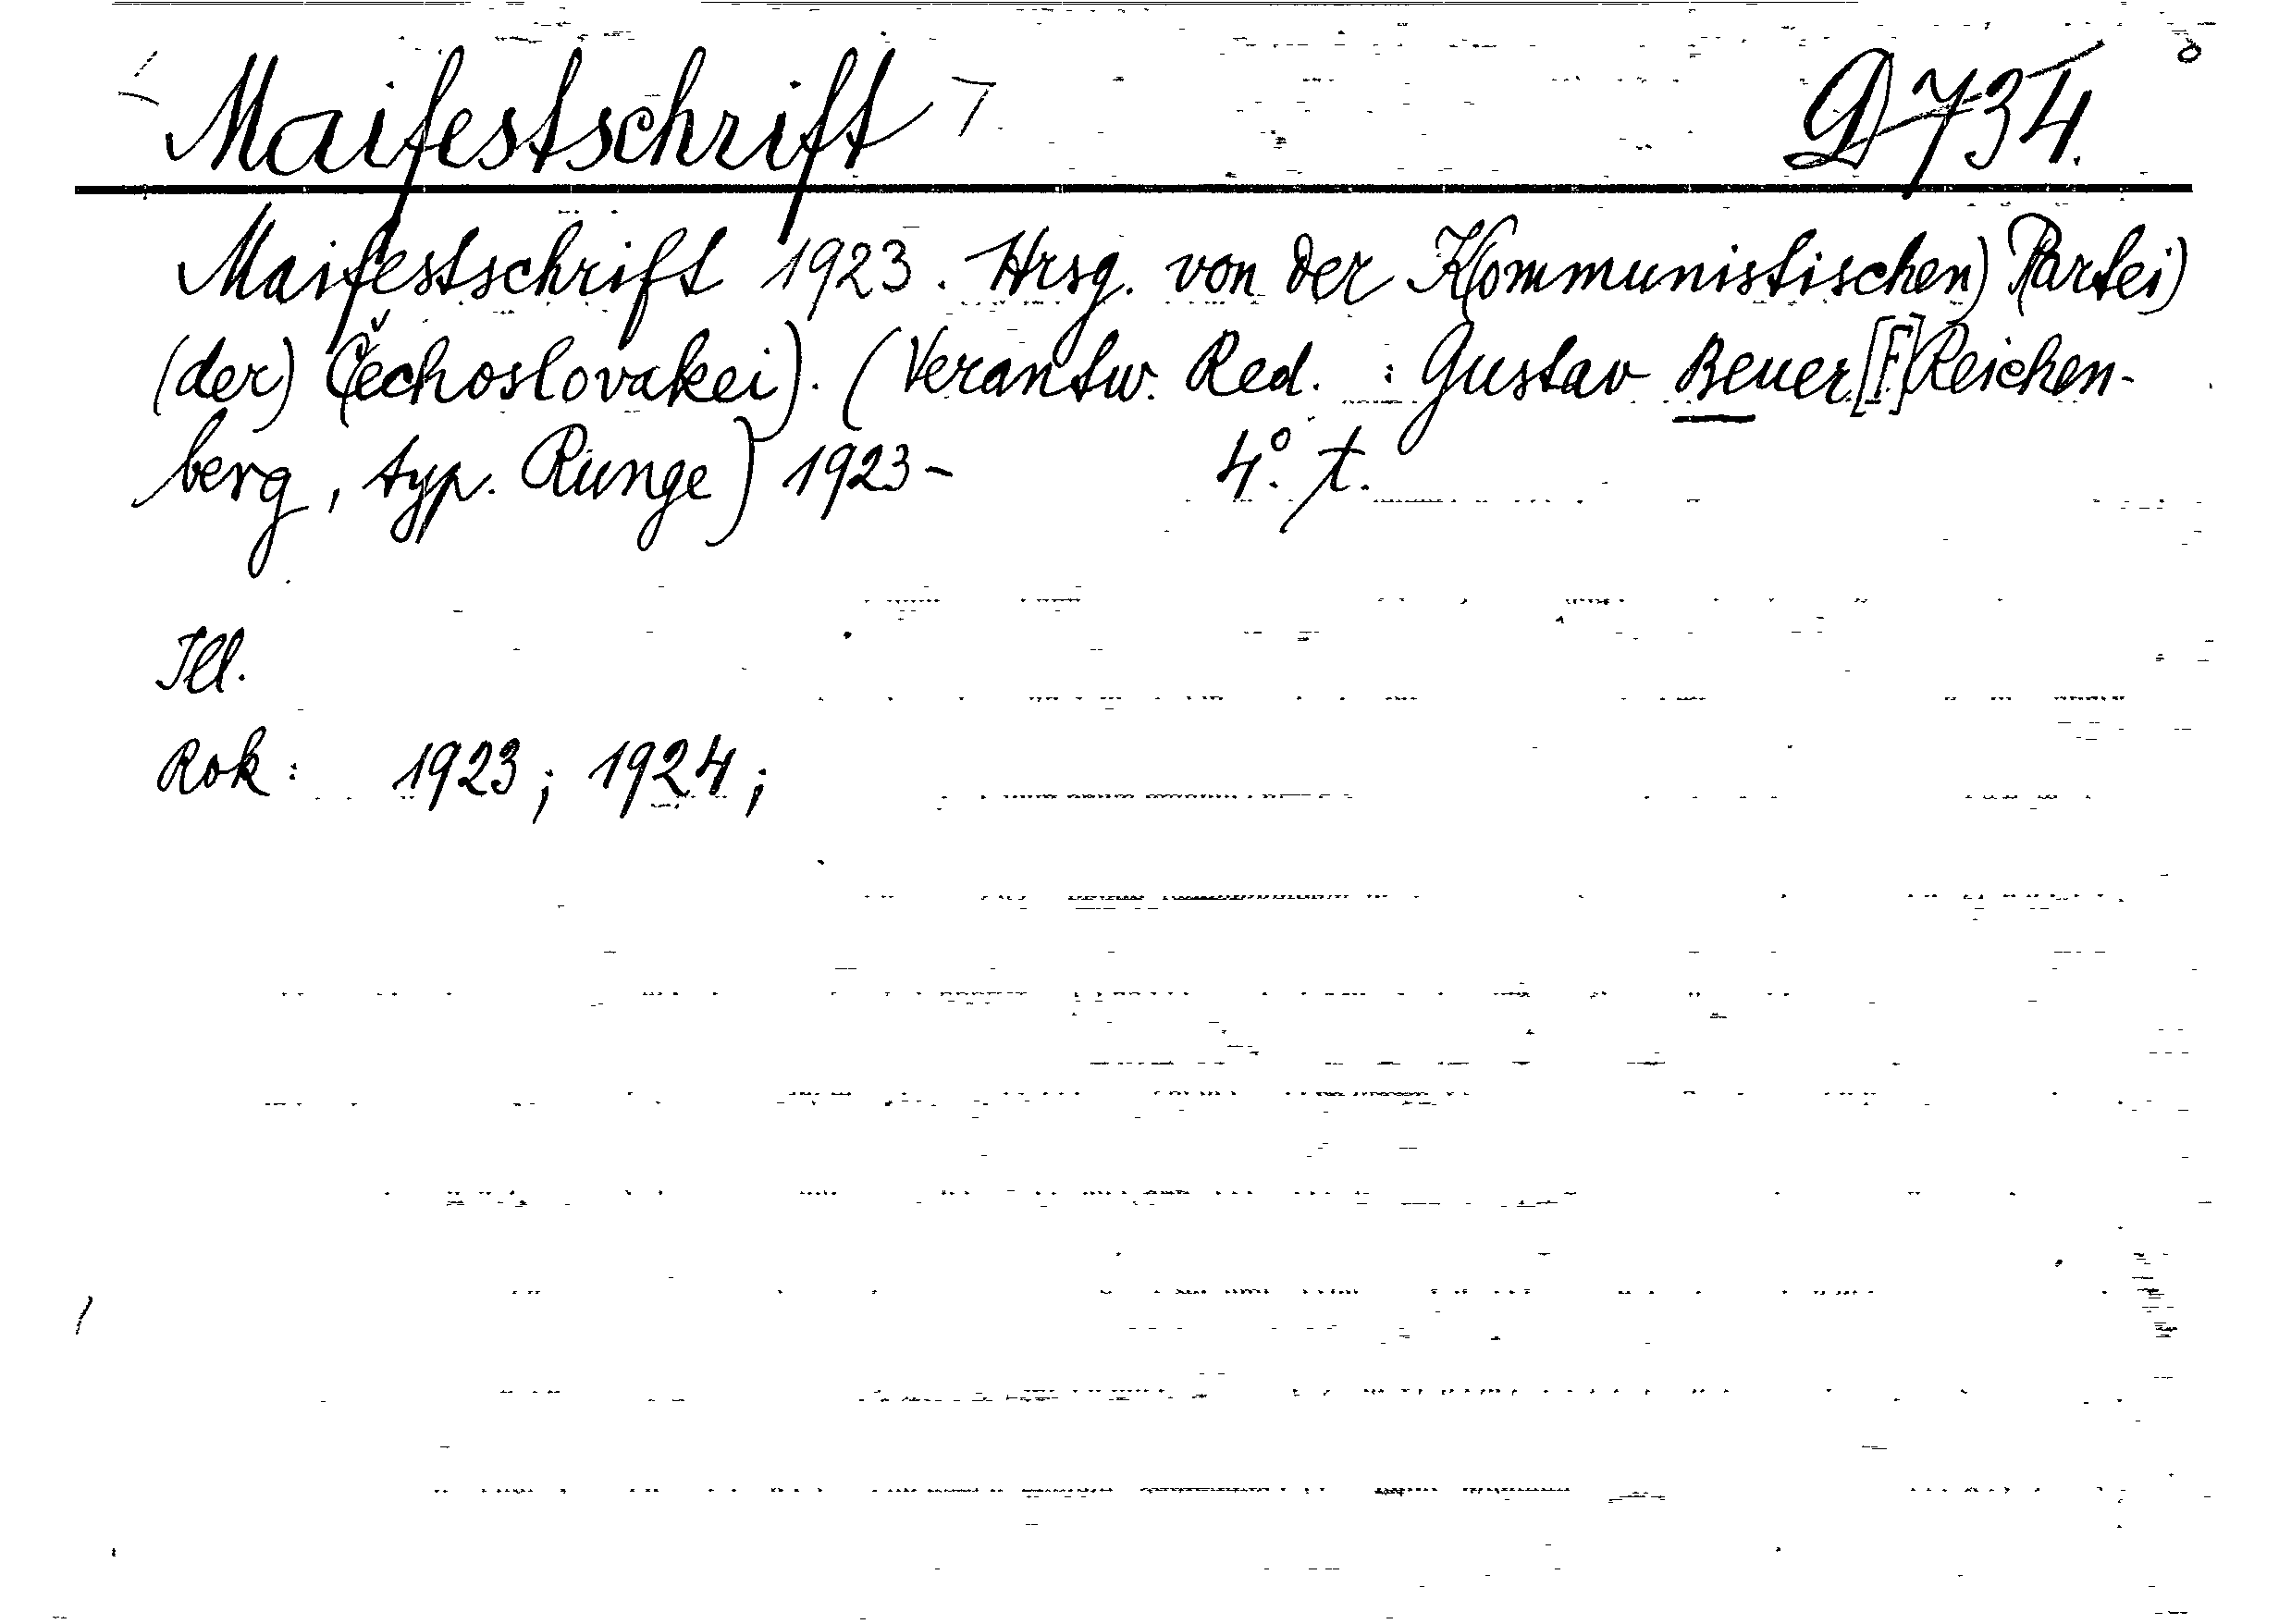 Maifestschrift D 734.
Maifestschrift 1923. Hrsg. von der K(ommunistischen) P(artei)
(der) Č(echoslovakei). (Verantw. Red. : Gustav Beuer[F] Reichen-
berg, typ. Runge) 1923- 4°. t.
Ill.
Rok: 1923; 1924;